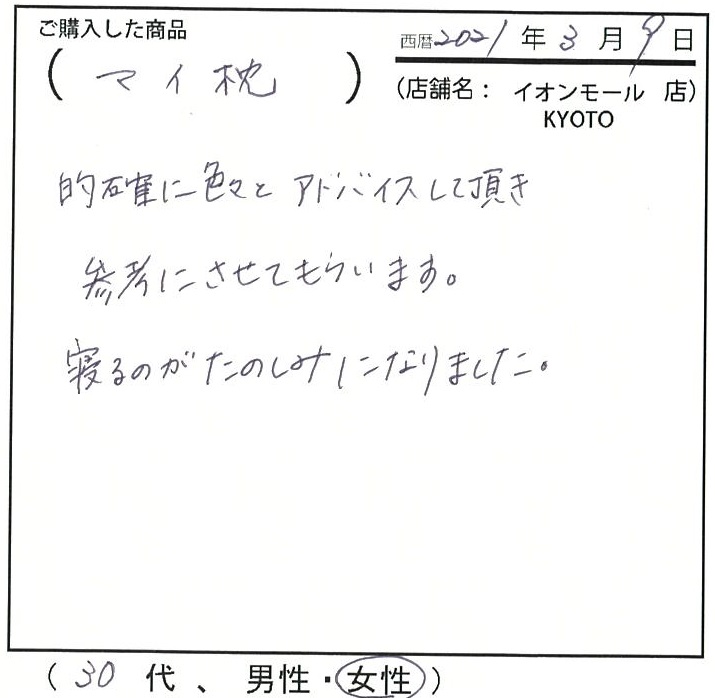 ご購入した商品
西暦2021年3月9日
(マイ枕)
(店舗名：イオンモール 店)
KYOTO
的確に色々とアドバイスして頂き
参考にさせてもらいます。
寝るのがたのしみになりました。
(30代、男性・女性)